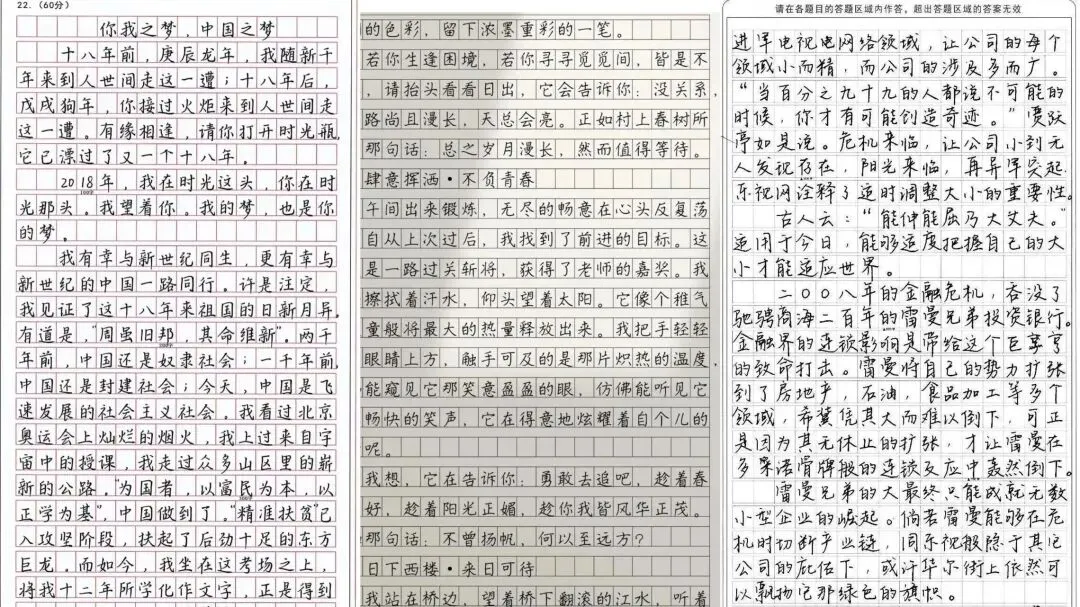 22.（60分）
你我之梦，中国之梦
十八年前，庚辰龙年，我随新千
年来到人世间走这一遭；十八年后，
戊戌狗年，你接过火炬来到人世间走
这一遭。有缘相逢，请你打开时光瓶，
它已漂过了又一个十八年。
2018年，我在时光这头，你在时
光那头。我望着你。我的梦，也是你
的梦。
我有幸与新世纪同生，更有幸与
新世纪的中国一路同行。许是注定，
我见证了这十八年来祖国的日新月异。
有道是，“周虽旧邦，其命维新”。两千
年前，中国还是奴隶社会；一千年前，
中国还是封建社会；今天，中国是飞
速发展的社会主义社会。我看过北京
奥运会上灿烂的烟火，我上过来自宇
宙中的授课，我走过众多山区里的崭
新的公路。“为国者，以富民为本，以
正学为基”，中国做到了。“精准扶贫”已
入攻坚阶段，扶起了后劲十足的东方
巨龙。而如今，我坐在这考场之上，
将我十二年所学化作文字，正是得到
的色彩，留下浓墨重彩的一笔。
若你生逢困境，若你寻寻觅觅间，皆是不
，请抬头看看日出，它会告诉你：没关系，
路尚且漫长，天总会亮。正如村上春树所
那句话：总之岁月漫长，然而值得等待。
肆意挥洒·不负青春
午间出来锻炼，无尽的畅意在心头反复荡
自从上次过后，我找到了前进的目标。这
是一路过关斩将，获得了老师的嘉奖。我
擦拭着汗水，仰头望着太阳。它像个稚气
童般将最大的热量释放出来。我把手轻轻
眼睛上方，触手可及的是那片炽热的温度，
能窥见它那笑意盈盈的眼，仿佛能听见它
畅快的笑声，它在得意地炫耀着自个儿的
呢。
我想，它在告诉你：勇敢去追吧，趁着春
好，趁着阳光正媚，趁你我皆风华正茂。
那句话：不曾扬帆，何以至远方？
日下西楼·来日可待
我站在桥边，望着桥下翻滚的江水，听着
请在各题目的答题区域内作答，超出答题区域的答案无效
进军电视电网络领域，让公司的每个
领域小而精，而公司的涉及多而广。
“当百分之九十九的人都说不可能的
时候，你才有可能创造奇迹。”贾跃
亭如是说。危机来临，让公司小到无
人发现存在，阳光来临，再异军突起，
乐视网诠释了适时调整大小的重要性。
古人云：“能伸能屈乃大丈夫。”
运用于今日，能够适度把握自己的大
小才能适应世界。
二〇〇八年的金融危机，吞没了
驰骋商海二百年的雷曼兄弟投资银行。
金融界的连锁影响是带给这个巨享亨
的致命打击。雷曼将自己的势力扩张
到了房地产，石油，食品加工等多个
领域，希冀凭其大而难以倒下，可正
是因为其无休止的扩张，才让雷曼在
多米诺骨牌般的连锁反应中轰然倒下。
雷曼兄弟的大最终只能成就无数
小型企业的崛起。倘若雷曼能够在危
机时切断产业链，同乐视般隐于其它
公司的庇佑下，或许华尔街上依然可
以飘扬它那绿色的旗帜。